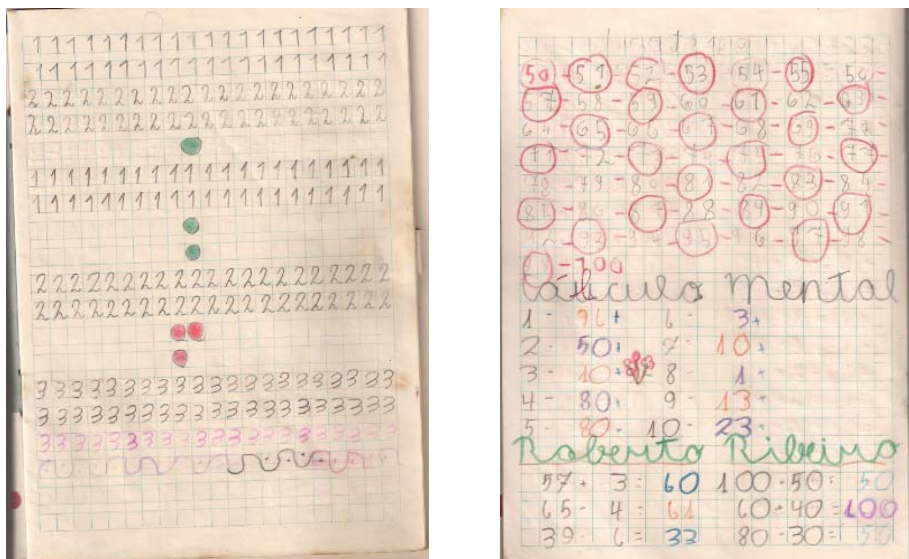 1 1 1 1 1 1 1 1 1 1 1 1 1 1 1 1 1 1 1 1
1 1 1 1 1 1 1 1 1 1 1 1 1 1 1 1 1 1 1 1
2 2 2 2 2 2 2 2 2 2 2 2 2 2 2 2 2 2 2 2 2
2 2 2 2 2 2 2 2 2 2 2 2 2 2 2 2 2 2 2 2 2
1 1 1 1 1 1 1 1 1 1 1 1 1 1 1 1 1 1 1 1
1 1 1 1 1 1 1 1 1 1 1 1 1 1 1 1 1 1 1 1
2 2 2 2 2 2 2 2 2 2 2 2 2 2 2 2 2 2 2 2 2
2 2 2 2 2 2 2 2 2 2 2 2 2 2 2 2 2 2 2 2 2
3 3 3 3 3 3 3 3 3 3 3 3 3 3 3 3 3 3 3 3 3
3 3 3 3 3 3 3 3 3 3 3 3 3 3 3 3 3 3 3 3 3
3 3 3 3 3 3 3 3 3 3 3 3 3 3 3 3 3 3 3 3 3
50 - 51 - 52 - 53 - 54 - 55 - 56 -
57 - 58 - 59 - 60 - 61 - 62 - 63 -
64 - 65 - 66 - 67 - 68 - 69 -
71 - 72 - 73 - 74 - 76 - 77
78 - 79 - 80 - 81 - 82 - 83 - 84
86 - 87 - 88 - 89 - 90 - 91
93 - 94 - 95 - 96 - 97 - 98
- 100
Cálculo Mental
1 - 96+ 6 - 3+
2 - 50+ 7 - 10+
3 - 10+ 8 - 1+
4 - 80+ 9 - 13+
5 - 80- 10 - 23-
Roberto Ribeiro
57 + 3 = 60 100 - 50 = 50
65 - 4 = 61 60 + 40 = 100
39 - 6 = 33 80 - 30 = 50